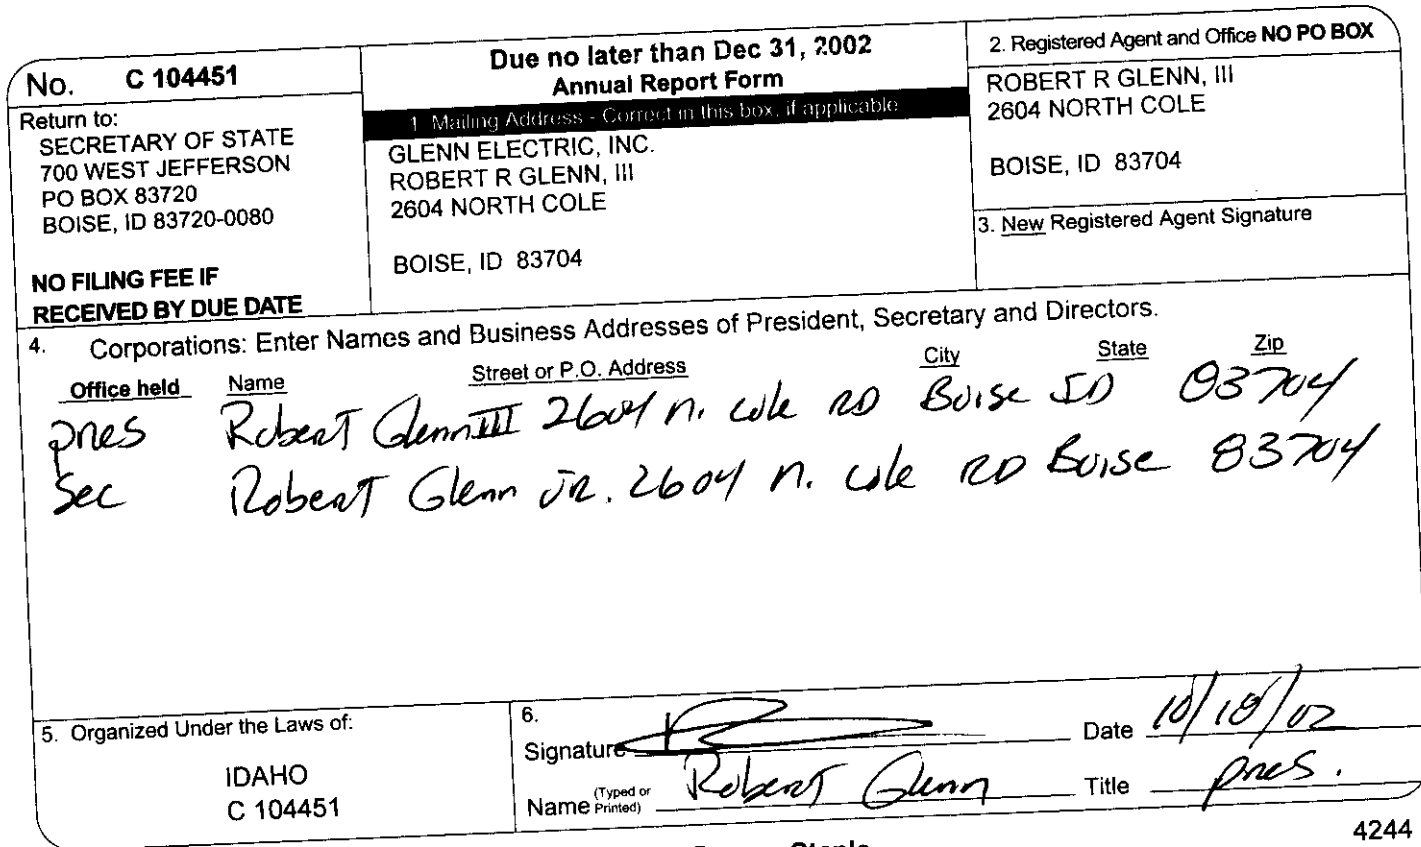 No. C 104451
Return to:
SECRETARY OF STATE
700 WEST JEFFERSON
PO BOX 83720
BOISE, ID 83720-0080
NO FILING FEE IF
RECEIVED BY DUE DATE
Due no later than Dec 31, 2002
Annual Report Form
1. Mailing Address - Correct in this box, if applicable
GLENN ELECTRIC, INC.
ROBERT R GLENN, III
2604 NORTH COLE
BOISE, ID 83704
2. Registered Agent and Office NO PO BOX
ROBERT R GLENN, III
2604 NORTH COLE
BOISE, ID 83704
3. New Registered Agent Signature
4. Corporations: Enter Names and Business Addresses of President, Secretary and Directors.
Office held Name Street or P.O. Address City State Zip
pres Robert Glenn III 2604 n. cole RD Boise ID 83704
Sec Robert Glenn JR. 2604 n. cole RD Boise 83704
5. Organized Under the Laws of:
IDAHO
C 104451
6.
Signature Date 10/18/02
Name (Typed or Printed) Robert Glenn Title pres.
4244